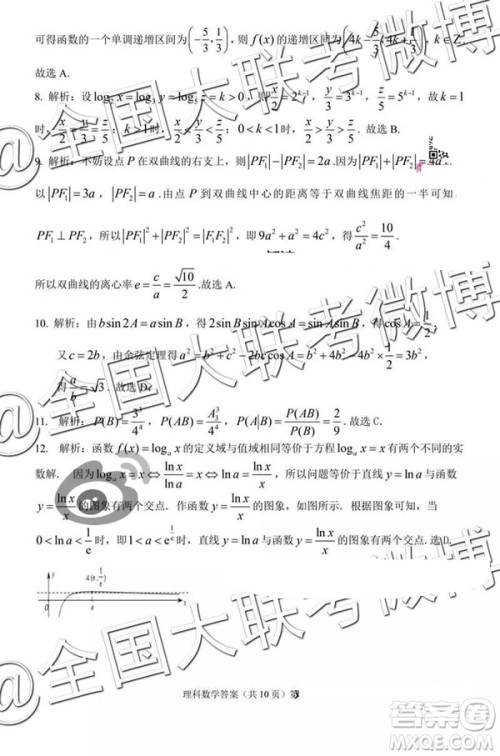 可得函数的一个单调递增区间为(-5/3, 1/3), 则 f(x) 的递增区间为(4k-5/3, 4k+1/3), k∈Z.
故选 A.
8. 解析: 设 log₂x=log₃y=log₅z=k>0, 则 x/2=2^{k-1}, y/3=3^{k-1}, z/5=5^{k-1}, 故 k=1
时,
时, x/2>y/3>z/5. 故选 B.
9. 解析: 不妨设点 P 在双曲线的右支上, 则|PF₁|-|PF₂|=2a.因为|PF₁|+|PF₂|=4a, 所
以|PF₁|=3a, |PF₂|=a.由点 P 到双曲线中心的距离等于双曲线焦距的一半可知,
PF₁⊥PF₂, 所以|PF₁|²+|PF₂|²=|F₁F₂|², 即 9a²+a²=4c², 得 c²/a²=10/4.
所以双曲线的离心率 e=c/a=√10/2.故选 A.
10. 解析: 由 b sin2A=a sinB, 得 2b sinA cosA=a sinB, 得 cosA=1/2.
又 c=2b, 由余弦定理得 a²=b²+c²-2bc cosA=b²+4b²-4b²·1/2=3b²,
得 a/b=√3. 故选 D.
11. 解析: P(B)=3³/4⁴, P(AB)=A₃³/4⁴, P(A|B)=P(AB)/P(B)=2/9. 故选 C.
12. 解析: 函数 f(x)=logₐx 的定义域与值域相同等价于方程 logₐx=x 有两个不同的实
数解. 因为 logₐx=x⇔ln x/ln a=x⇔ln a=ln x/x, 所以问题等价于直线 y=ln a 与函数
y=ln x/x 的图象有两个交点. 作函数 y=ln x/x 的图象如图所示. 根据图象可知, 当
0<ln a<1/e 时, 即 1<a<e^{1/e} 时, 直线 y=ln a 与函数 y=ln x/x 的图象有两个交点. 选 D.
y
A(e, 1/e)
O
e
x
理科数学答案（共 10 页）第
@全国大联考微博
@全国大联考微博
@全国大联考微博
答案圈
MXQE.COM